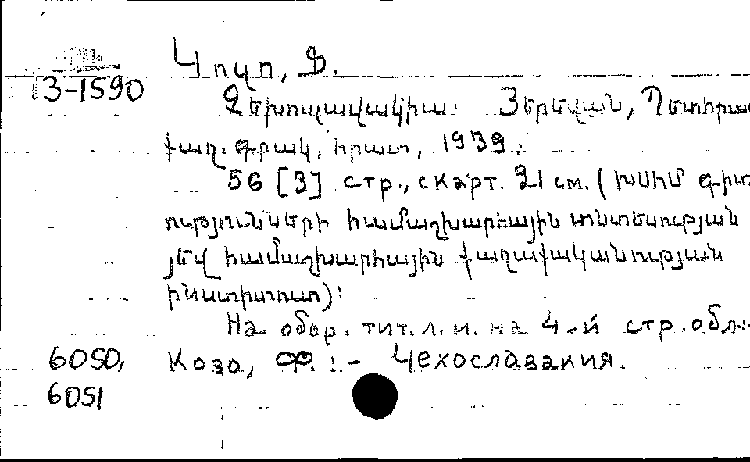 Կոզո, Ֆ.
3-1590
Չեխոսլավակիա. Յերեվան, Պետհրատ
քաղ. գրակ. հրատ, 1939.
56 [3] стр., с карт. 21 см. (ԽՍՍՄ գիտ
ությունների համաշխարհային տնտեսության
յեվ համաշխարհային քաղաքականության
ինստիտուտ):
На обор. тит. л. и. на 4-й стр. обл.
6050, Козо, Ф. :- Чехословакия.
6051